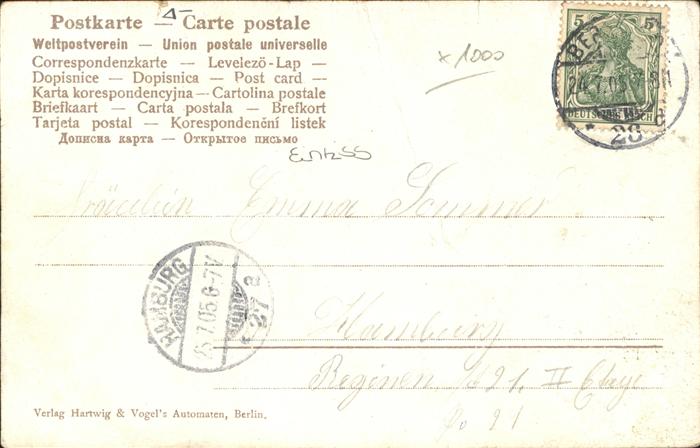 Postkarte — Carte postale
Weltpostverein — Union postale universelle
Correspondenzkarte — Levelező-Lap —
Dopisnice — Dopisnica — Post card —
Karta korespondencyjna — Cartolina postale
Briefkaart — Carta postala — Brefkort
Tarjeta postal — Korespondenční listek
Дописна карта — Открытое письмо
x 1000
5 5
DEUTSCHES REICH
28
Fräulein Emma Sommer
HAMBURG
7.05.6-7V
Hamburg
II Etage
Verlag Hartwig & Vogel's Automaten, Berlin.